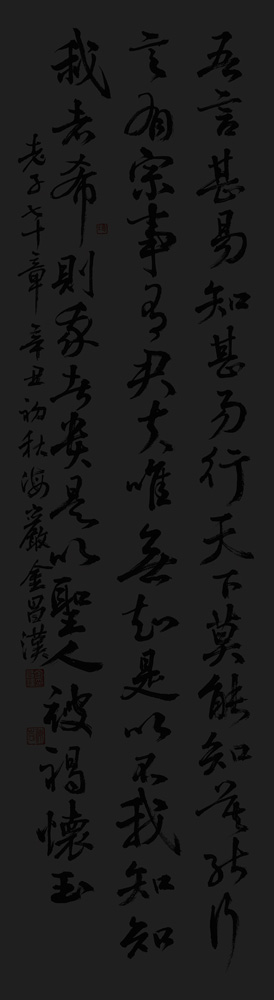 吾言甚易知甚易行天下莫能知莫能行
言有宗事有君夫唯無知是以不我知知
我者希則我者貴是以聖人被褐懷玉
老子七十章 辛丑初秋 海巖金昌漢